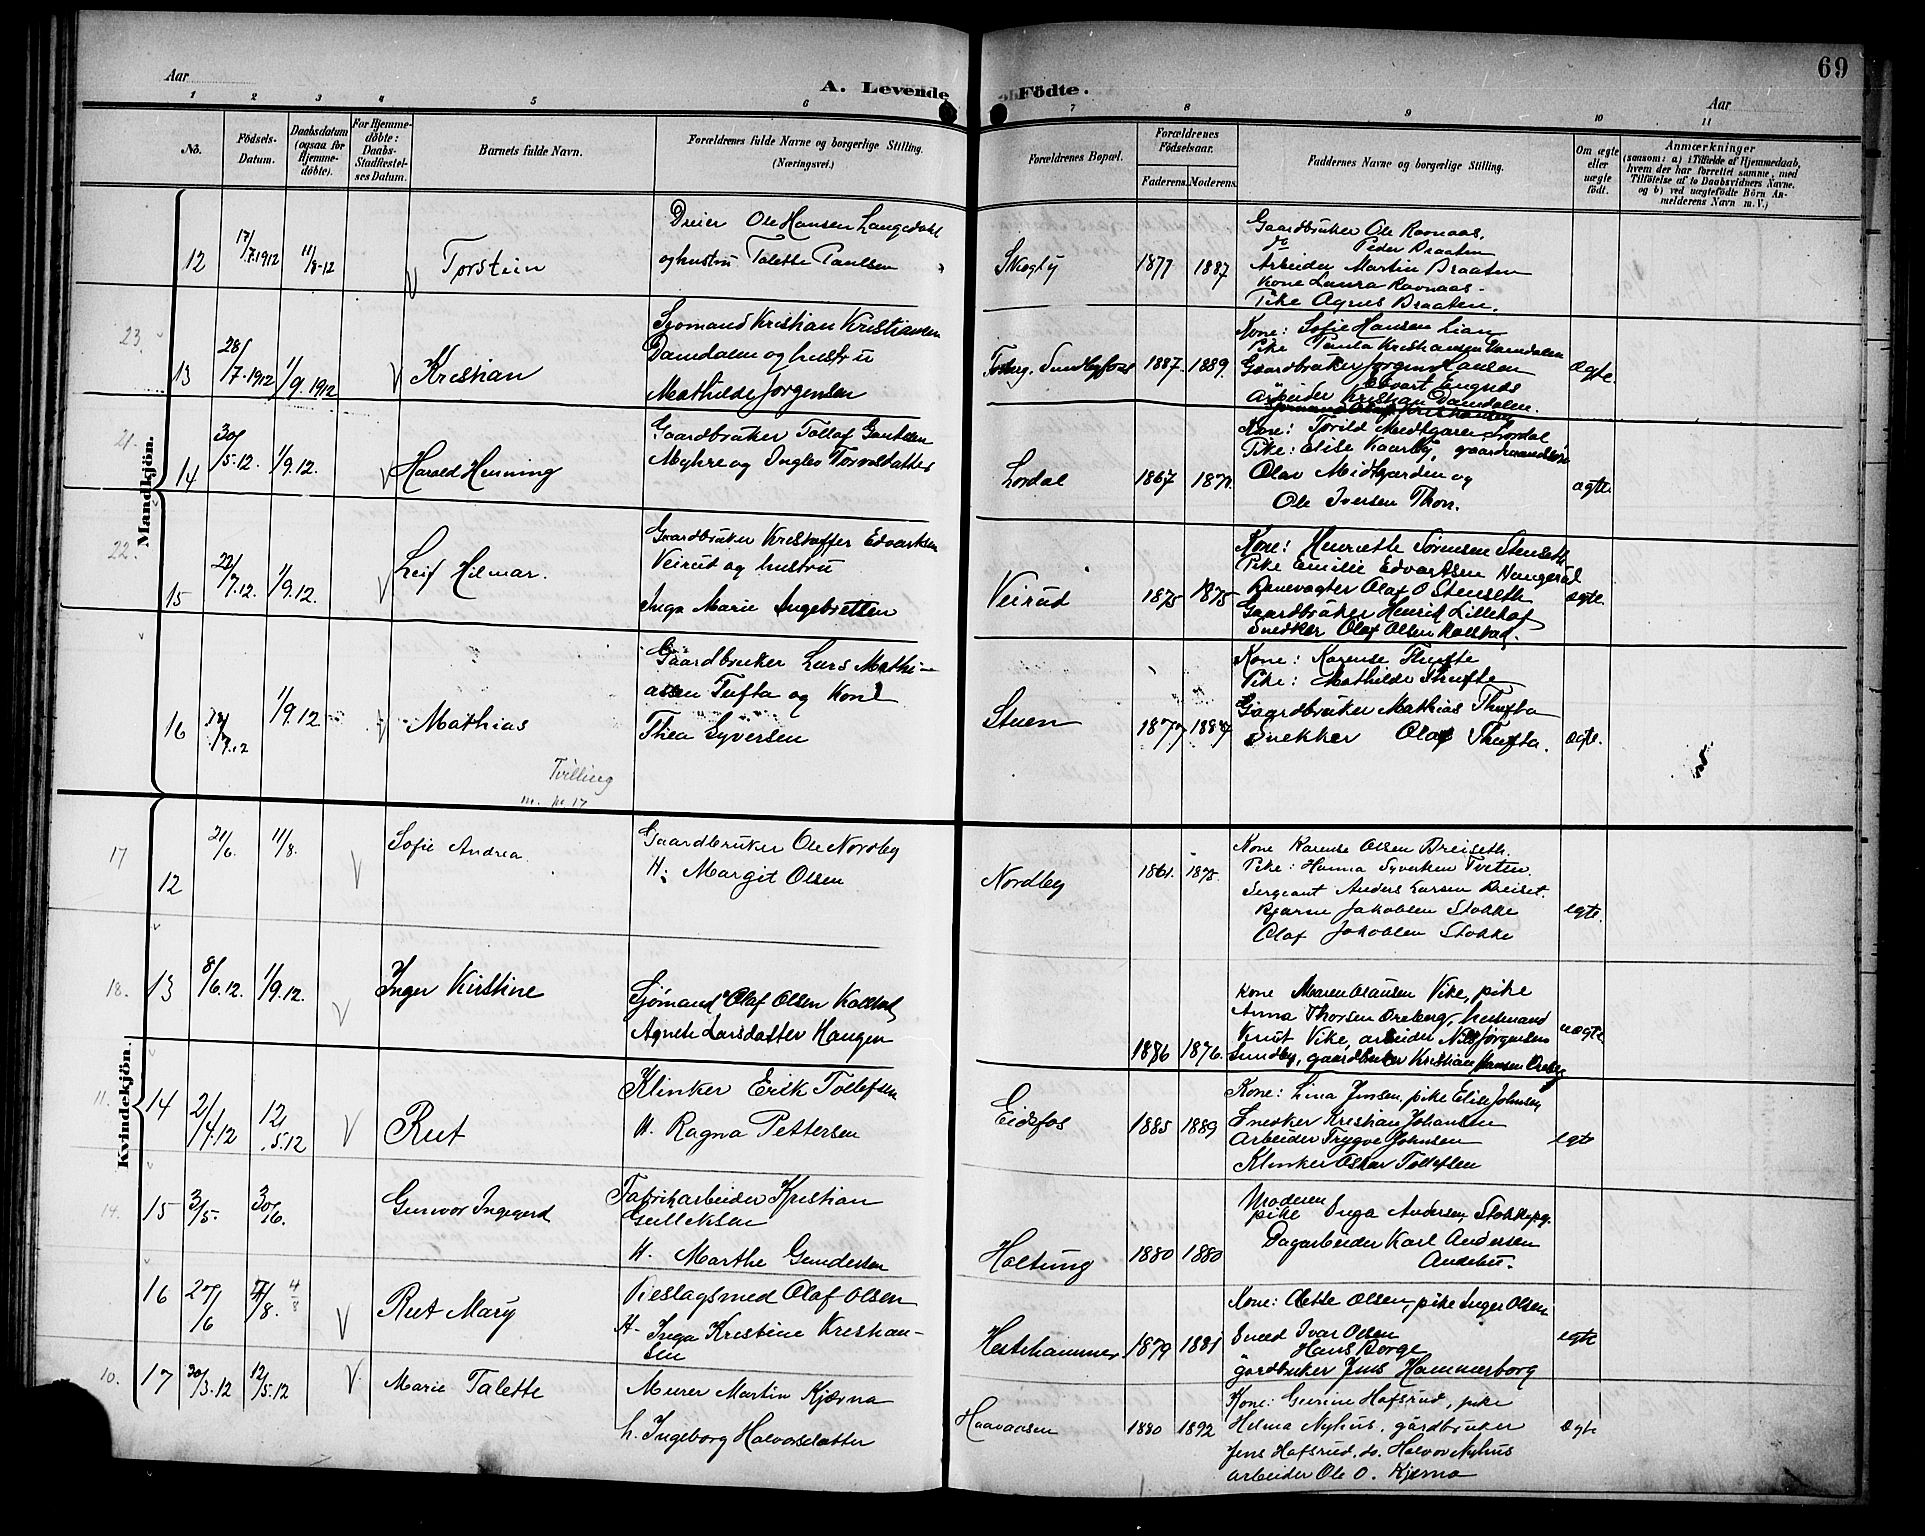 69
Aar
A. Levende Födte.
Aar
1 2 3 4 5 6 7 8 9 10 11
Nô.
Födsels-Datum.
Daabsdatum (ogsaa for Hjemme-döbte).
For Hjemme-döbte: Daabs-Stadfæstel-ses Datum.
Barnets fulde Navn.
Forældrenes fulde Navne og borgerlige Stilling. (Næringsvei.)
Forældrenes Bopæl.
Forældrenes Födselsaar.
Faderens. Moderens.
Faddernes Navne og borgerlige Stilling.
Om ægte eller uægte födt.
Anmærkninger
(saasom: a) i Tilfælde af Hjemmedaab, hvem der har forrettet samme, med Tilföielse af to Daabsvidners Navne, og b) ved uægtefödte Börn An-melderens Navn m. V.)
Mandkjön.
12 17/7.1912 11/8-12 Torstein
Dreier Ole Hansen Langedahl
og hustru Talette Paulsen
Skogly 1877 1887
Gaardbruker Ole Ravnaas.
do Peder Braaten
Arbeider Martin Braaten
Kone Laura Ravnaas.
Pike Agnes Braaten.
23.
13 28/7.1912 1/9.1912 Kristian
Sjömand Kristian Kristiansen
Damdalen og hustru
Mathilde Jorgensen
1887. 1889.
Kone: Sofie Hansen Lian
Pike Paula Kristiansen Damdalen
Gaardbruker Jorgen Hansen
Edvart Engnæs
Arbeider Kristian Damdalen.
Ægte.
21.
14 30/5.12. 1/9.12. Harald Henning
Gaardbruker Tollof
Myhre og Inglev Torvesdatter
Lordal 1867
Kone: Torild Midtgaren Lordal
Pike: Elise Kaarby, gaardmændene
Olav Midtgarden og
Ole Iversen Thon.
ægte
22.
15 22/7.12. 1/9.12. Leif Hilmar.
Gaardbruker Kristoffer Edvartsen
Veirud og hustru
Inga Marie Ingebretten
Veirud 1875 1875
Kone: Henriette Sörensen Stenseth
Pike Emilie Edvartsen
Banevagter Olaf O Stenseth
Gaardbruker Henrik Lillehof
Snedker Olaf Olsen Kolstad.
ægte.
16 1/9.12 Mathias
Gaardbruker Lars Mathi-
assen Tufta og Kone
Thea Syversen
Stuen 1877 1884
Kone: Karense Thufte
Pike: Mathilde Thufte
Gaardbruker Mathias Thufta
Snekker Olaf Thufta.
ægte.
Tvilling
m. no 17
Kvindekjön.
17
12 21/6. 11/8. Sofie Andrea
Gaardbruker Ole Nordby
H. Margit Olsen
Nordby 1861. 1875.
Kone Karense Olsen Dreiseth.
Pike: Hanna Syversen Tveten.
Sergeant Anders Larsen Dreiset.
Bjarne Jakobsen Stokke
Olaf Jakobsen Stokke
egte.
18.
13 8/6.12. 1/9.12. Inger Kirstine
Sjömand Olaf Olsen Kolstad
Agnete Larsdatter Haugen
1886 1876.
Kone Maren Olausen Vike, pike
Anna Thorsen Oreberg, husmand
Knut Vike, arbeider Nils Jørgensen
Sundby, gaardbruker Kristian Hansen Oreberg
uægte
11.
14 2/4.12 12/5.12 Rut
Klinker Erik Tollefsen
H. Ragna Pettersen
Eidsfos 1885 1889
Kone: Lina Jensen, pike Elise Johnsen
Snedker Kristian Johansen
Arbeider Trygve Johnsen
Klinker Oskar Tollefsen
egte
14.
15 3/5. 30/6. Gunvor Ingegerd
Fabrikarbeider Kristian
Gulliksen
H. Marthe Gundersen
Holtung 1880 1880
Moderen
pike Inga Andersen,
Dagarbeider Karl Andersen
Andebu.
16 4/8 Rut Mary
Beslagsmed Olaf Olsen
H. Inga Kristine Kristian-
sen
Hestehammer 1879 1881
Kone: Olette Olsen, pike Inger Olsen
Smed Ivar Olsen
Hans Borge
gårdbruker Jens Hammerborg
egte
10.
17 30/3.12 12/5.12 Marie Talette
Murer Martin Kjærna
h. Ingeborg Halvorsdatter
Haavaasen 1880 1892
Kone: Gurine Hafsrud, pike
Helma Nyhus, gårdbruker
Jens Hafsrud, do. Halvor Nyhus
arbeider Ole O. Kjerna
Ægte